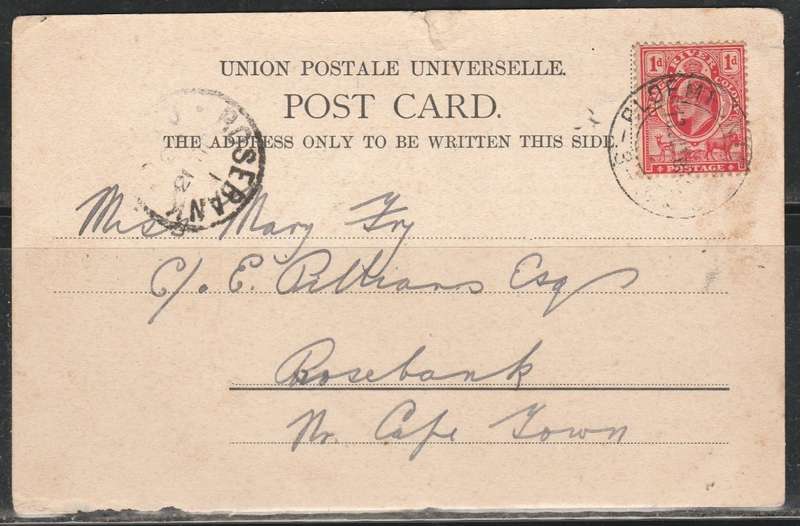 UNION POSTALE UNIVERSELLE.
POST CARD.
THE ADDRESS ONLY TO BE WRITTEN THIS SIDE
1d 1d
RIVER COLONY
POSTAGE
ROSEBANK
Miss Mary Fry
C/o. E. Pillians Esq
Rosebank
Nr. Cape Town